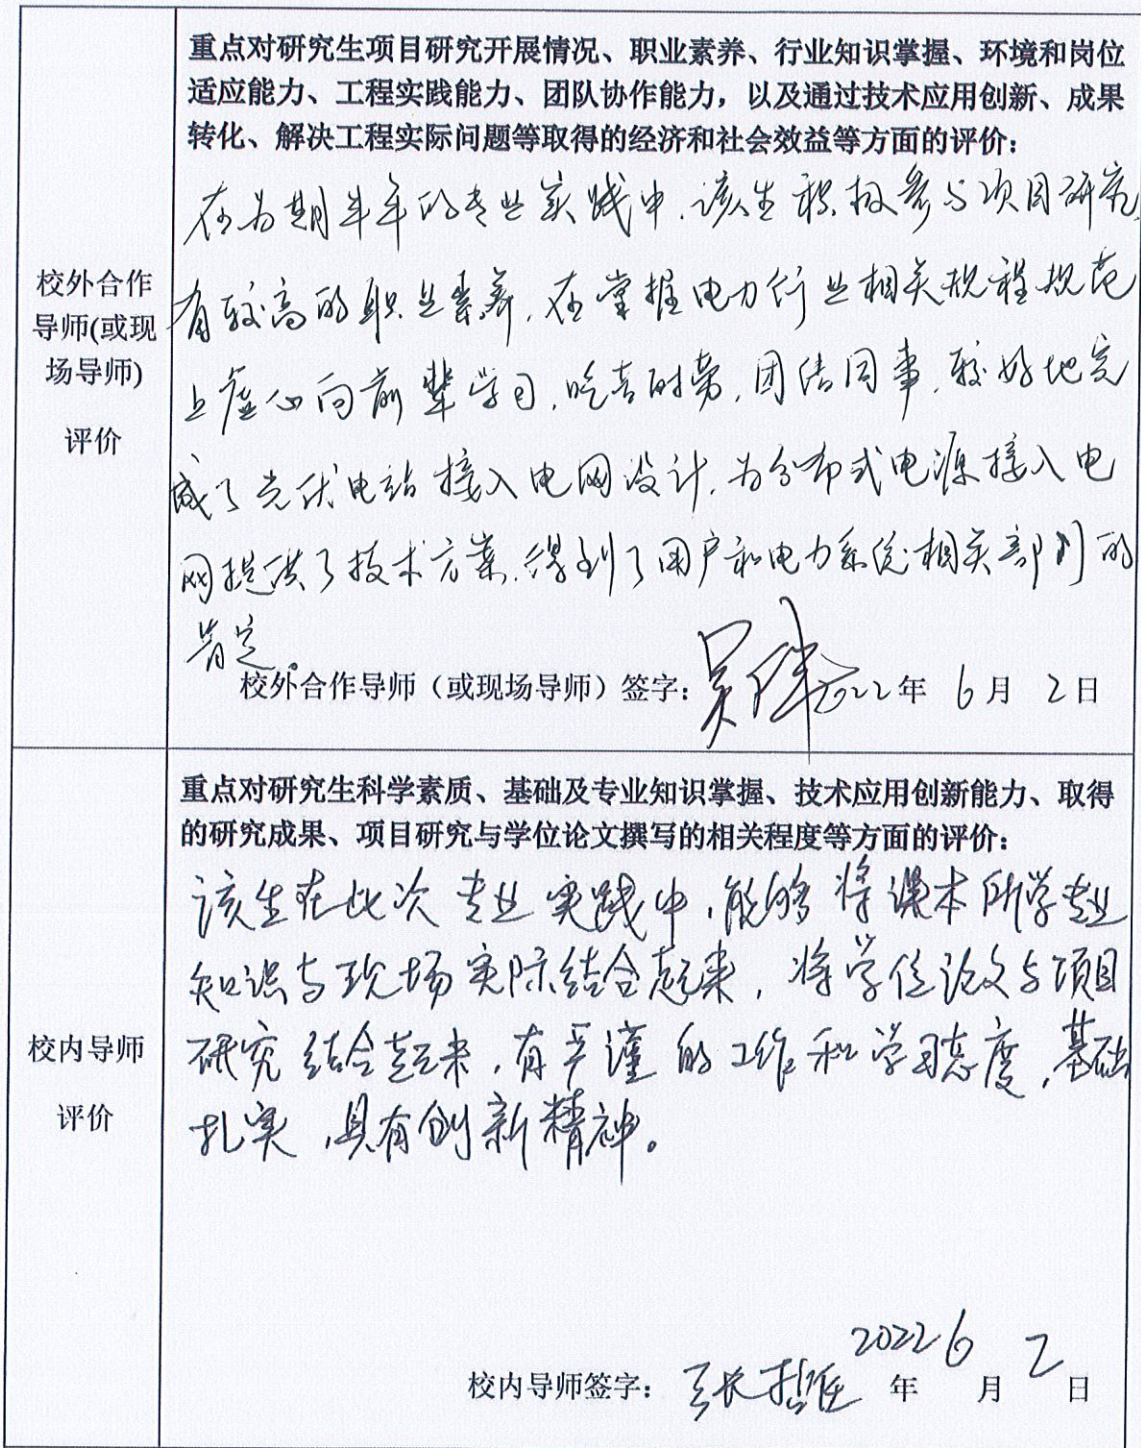 重点对研究生项目研究开展情况、职业素养、行业知识掌握、环境和岗位
适应能力、工程实践能力、团队协作能力，以及通过技术应用创新、成果
转化、解决工程实际问题等取得的经济和社会效益等方面的评价：
校外合作
导师(或现
场导师)
评价
在为期半年的专业实践中，该生积极参与项目研究，
有较高的职业素养，在掌握电力行业相关规程规范
上虚心向前辈学习，吃苦耐劳，团结同事，较好地完
成了光伏电站接入电网设计，为分布式电源接入电
网提供了技术方案，得到了用户和电力系统相关部门的
肯定。
校外合作导师（或现场导师）签字：吴 2022年 6月 2日
重点对研究生科学素质、基础及专业知识掌握、技术应用创新能力、取得
的研究成果、项目研究与学位论文撰写的相关程度等方面的评价：
校内导师
评价
该生在此次专业实践中，能够将课本所学专业
知识与现场实际结合起来，将学位论文与项目
研究结合起来，有严谨的工作和学习态度，基础
扎实，具有创新精神。
校内导师签字：张 2022年 6月 2日